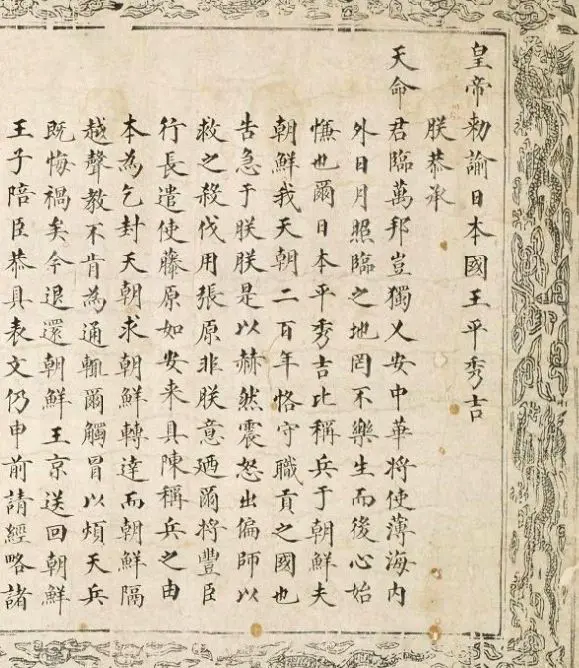 皇帝勑諭日本國王平秀吉
朕恭承
天命君臨萬邦豈獨乂安中華將使薄海內
外日月照臨之地罔不樂生而後心始
慊也爾日本平秀吉比稱兵于朝鮮夫
朝鮮我天朝二百年恪守職貢之國也
告急于朕朕是以赫然震怒出偏師以
救之殺伐用張原非朕意廼爾將豐臣
行長遣使藤原如安来具陳稱兵之由
本為乞封天朝求朝鮮轉達而朝鮮隔
越聲教不肯為通輙爾觸冒以煩天兵
既悔禍矣今退還朝鮮王京送回朝鮮
王子陪臣恭具表文仍申前請經略諸